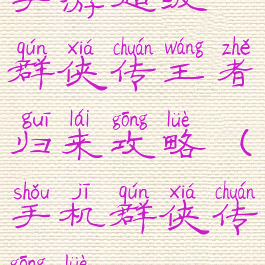 手游超级
qún xiá chuán wáng zhě
群侠传王者
guī lái gōng lüè
归来攻略（
shǒu jī qún xiá chuán
手机群侠传
gōng lüè